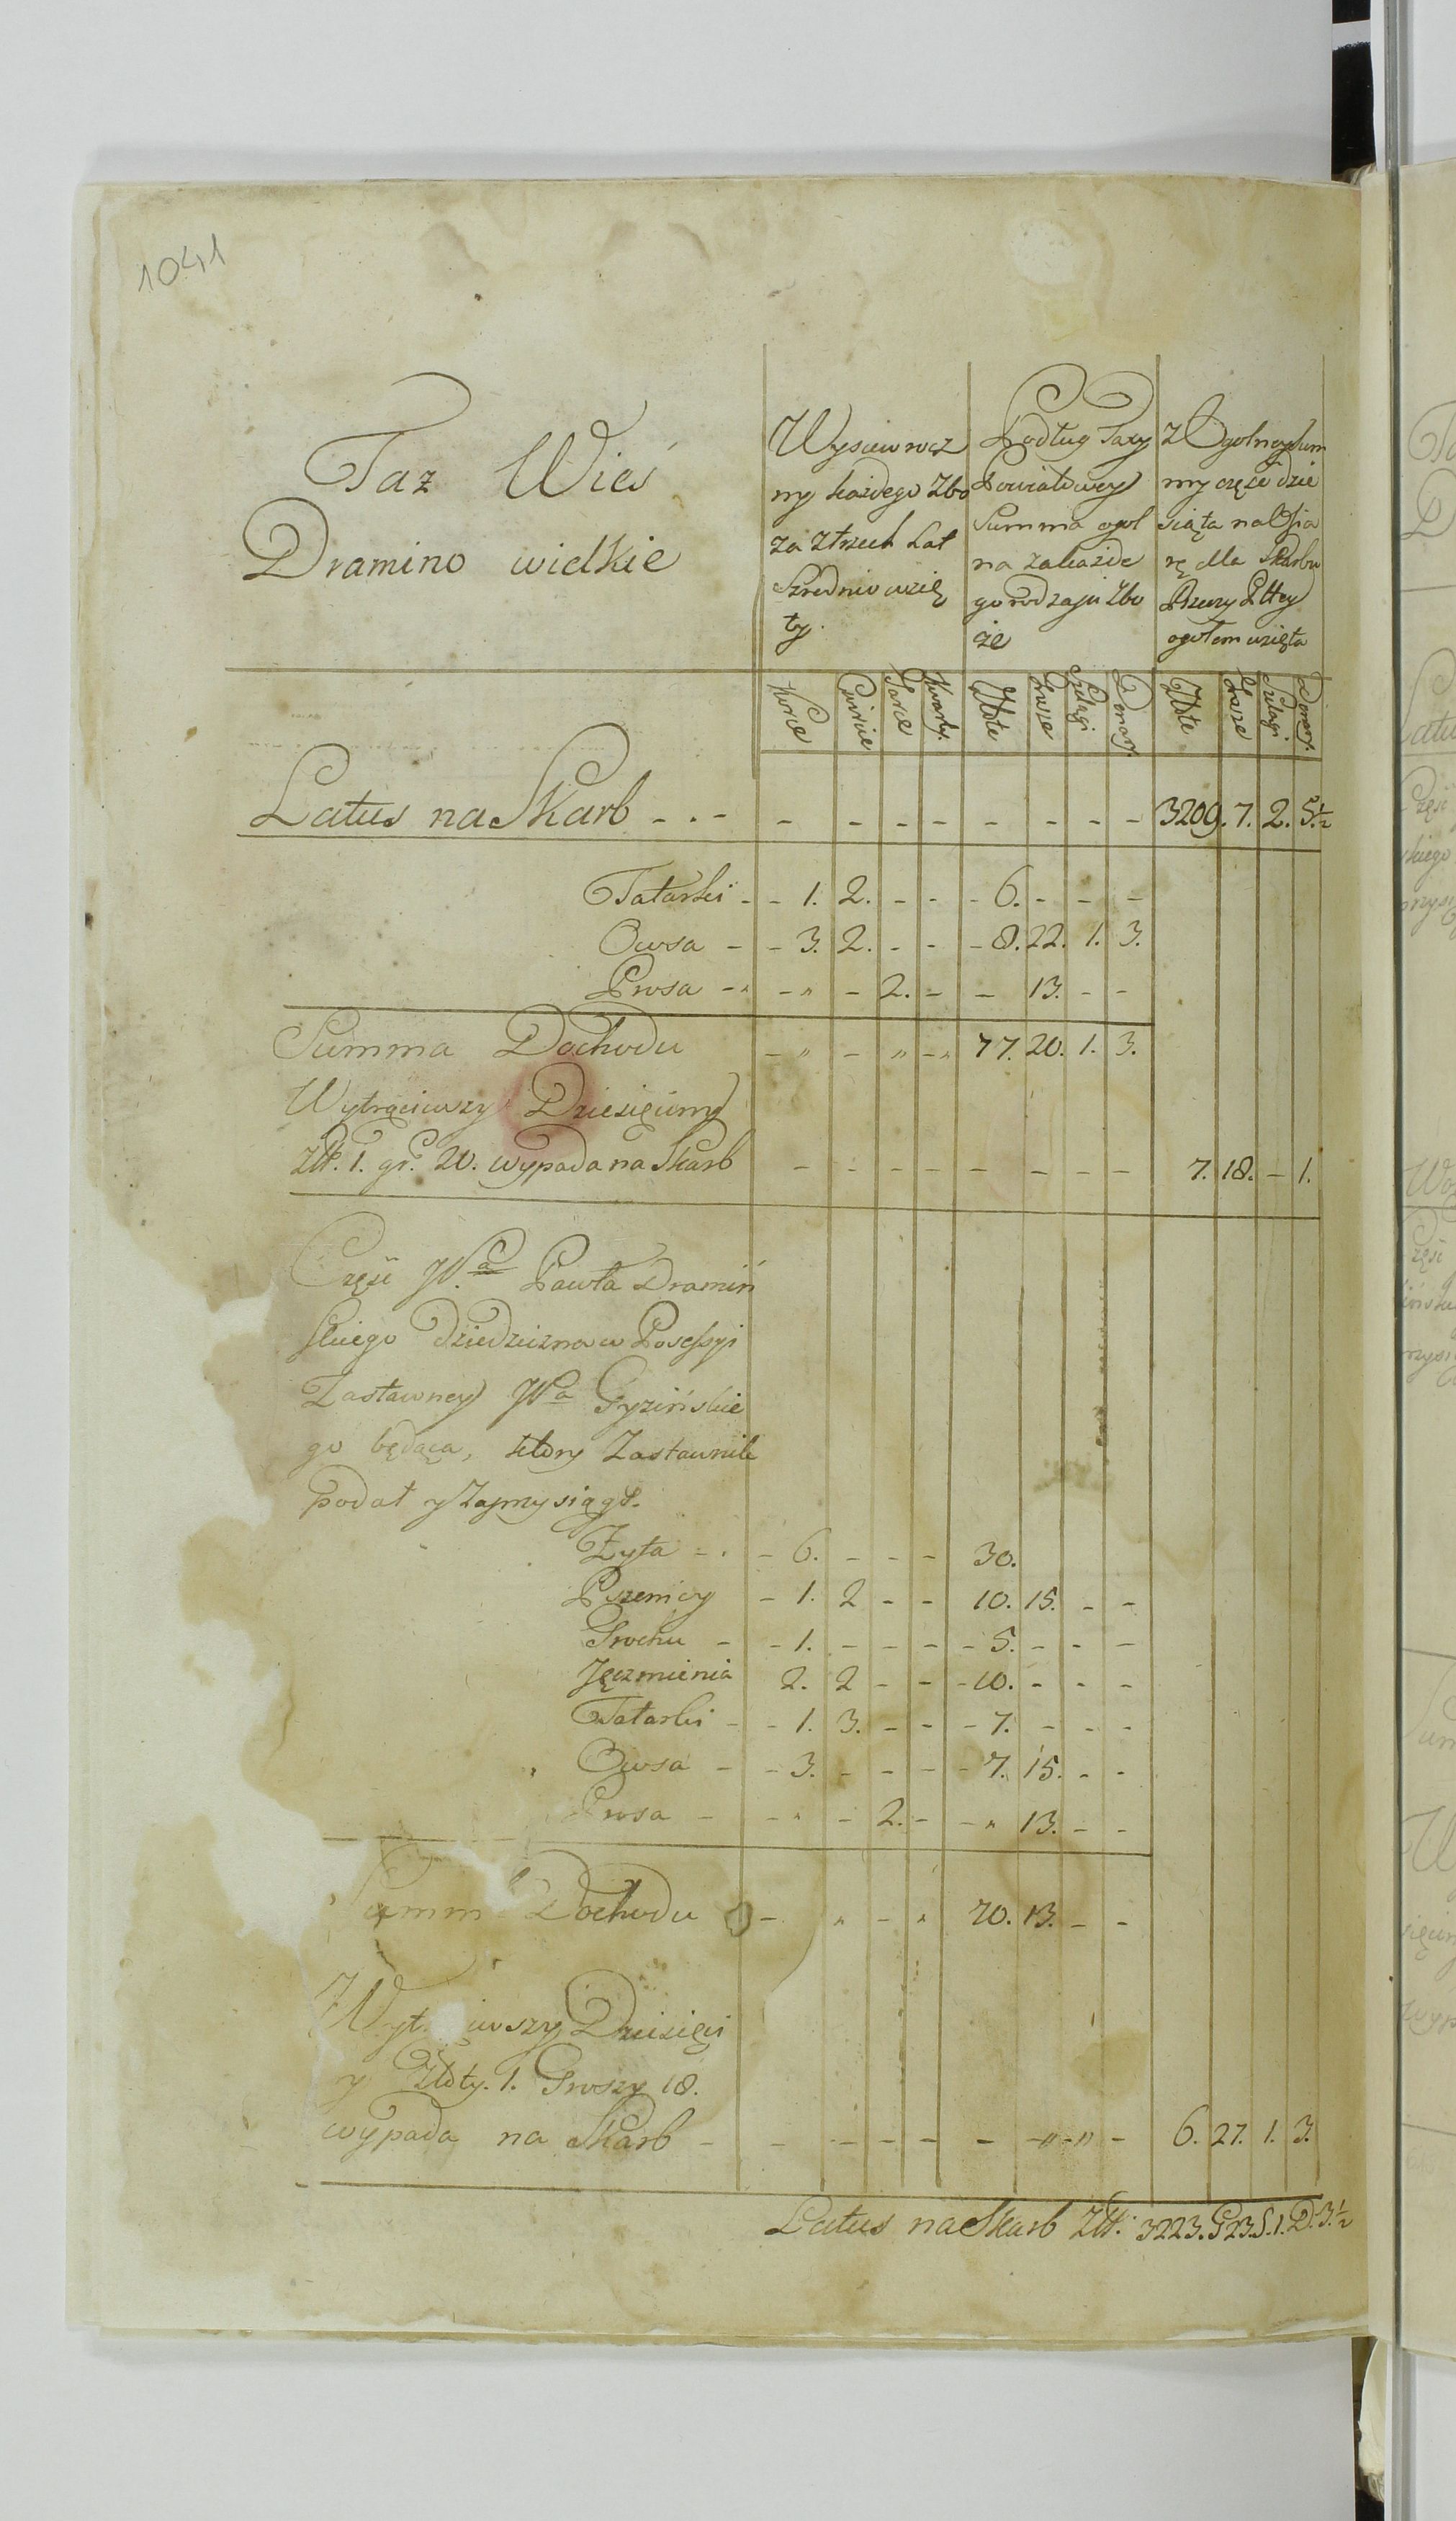 1041
Taz Wieś
Dramino wielkie
Wysiew rocz
ny każdego Zbo
za z trzech Lat
Szrednio wzię
ty.
Podług Taxy
Powiatowey
Summa ogol
na za każde
go rodzaju Zbo
że
Z Ogolney Sum
my częśc dzie
siąta na Ofia
rę dla Skarbu
Rzeczy Pltey
ogołem wzięta
Korce Cwircie Garce Kwarty. Złote Grosze Szelągi Denary. Złote Grosze Szelągi Denary.
Latus na Skarb - . - - - - - - - - - 3209. 7. 2. 5½
Tatarki - - 1. 2. - - - 6. - - -
Owsa - - 3. 2. - - - 8. 22. 1. 3.
Prosa - " - " - 2. - - 13. - -
Summa Dochodu - " - " - " 77. 20. 1. 3.
Wytrąciwszy Dziesięciny
Złł. 1. gr. 20. wypada na Skarb - - - - - - - - 7. 18. - 1.
Częśc Wa Pawła Dramiń
skiego Dziedziczna w Possessyi
Zastawney Wa Gyzińskie
go będąca, ktory Zastawnik
podał y Zaprzysiągł.
Żyta - . - 6. - - - 30.
Pszenicy - 1. 2 - - 10. 15. - -
Grochu - - 1. - - - - 5. - - -
Jęczmienia 2. 2 - - - 10. - - -
Tatarki - - 1. 3. - - - 7. - - -
Owsa - - 3. - - - - 7. 15. - -
Prosa - - " - 2. - - " 13. - -
Summ Dochodu - " - " 70. 13. - -
Wyt iwszy Dziesięci
y Złoty. 1. Groszy 18.
wypada na Skarb - - - - - - - " - " - 6. 27. 1. 3.
Latus na Skarb Złł. 3223. G 23. S. 1. D. 3.½